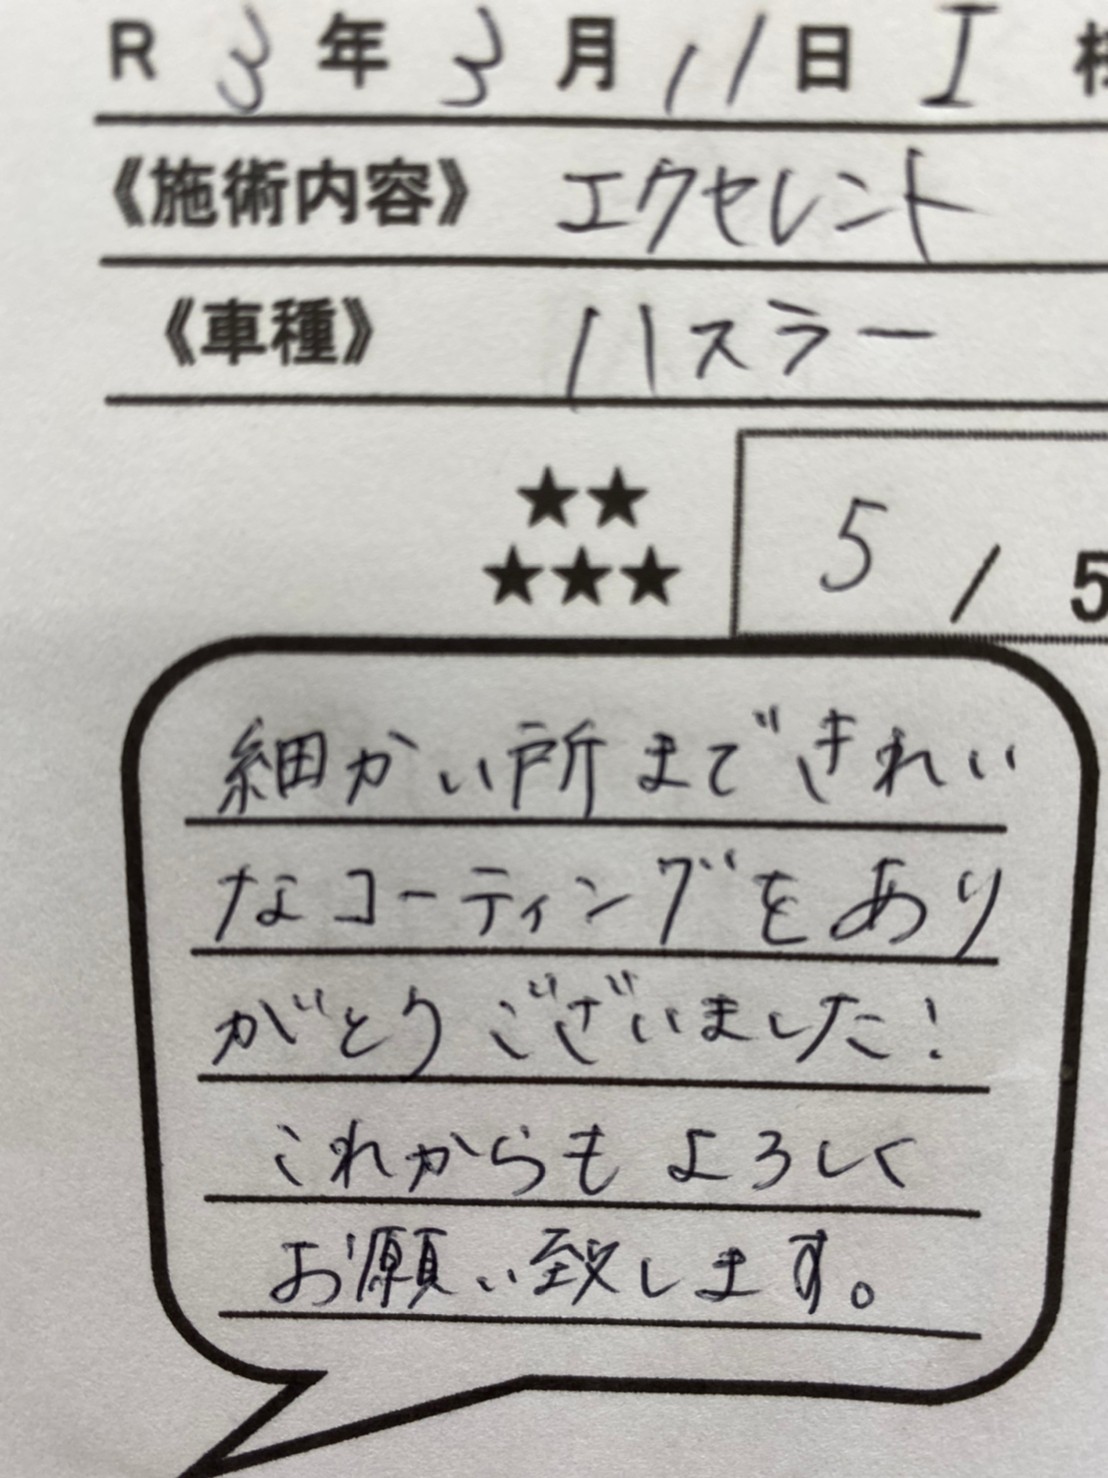 R 3 年 3 月 11 日 I 様
《施術内容》 エクセレント
《車種》 ハスラー
★★
★★★
5 / 5
細かい所まできれい
なコーティングをあり
がとうございました!
これからもよろしく
お願い致します。